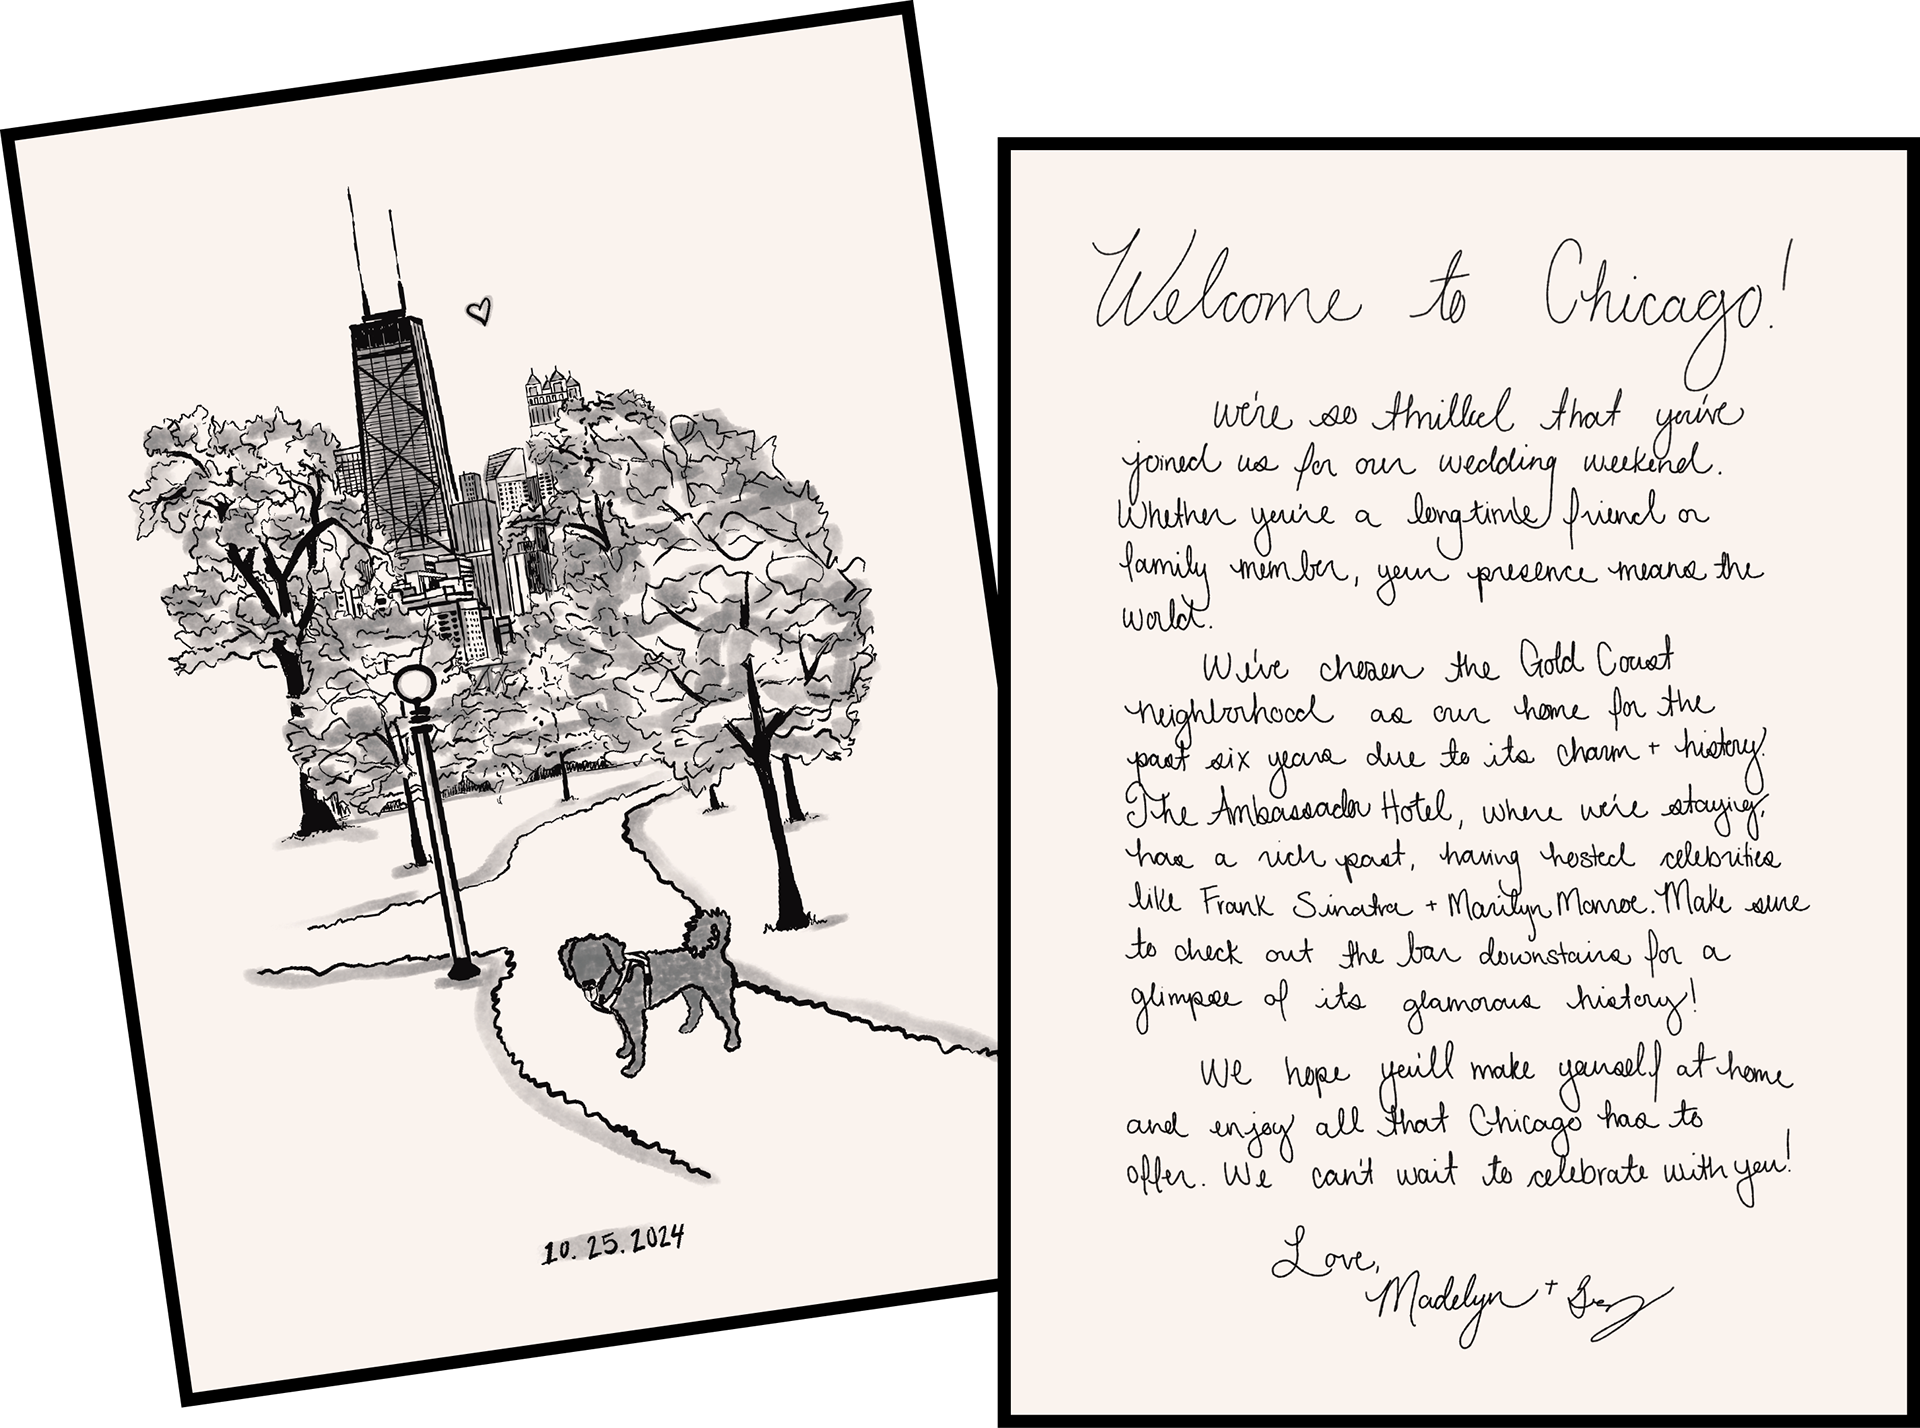 10.25.2024
Welcome to Chicago!
We're so thrilled that you've
joined us for our wedding weekend.
Whether you're a longtime friend or
family member, your presence means the
world.
We've chosen the Gold Coast
neighborhood as our home for the
past six years due to its charm + history.
The Ambassador Hotel, where we're staying,
has a rich past, having hosted celebrities
like Frank Sinatra + Marilyn Monroe. Make sure
to check out the bar downstairs for a
glimpse of its glamorous history!
We hope you'll make yourself at home
and enjoy all that Chicago has to
offer. We can't wait to celebrate with you!
Love,
Madelyn +